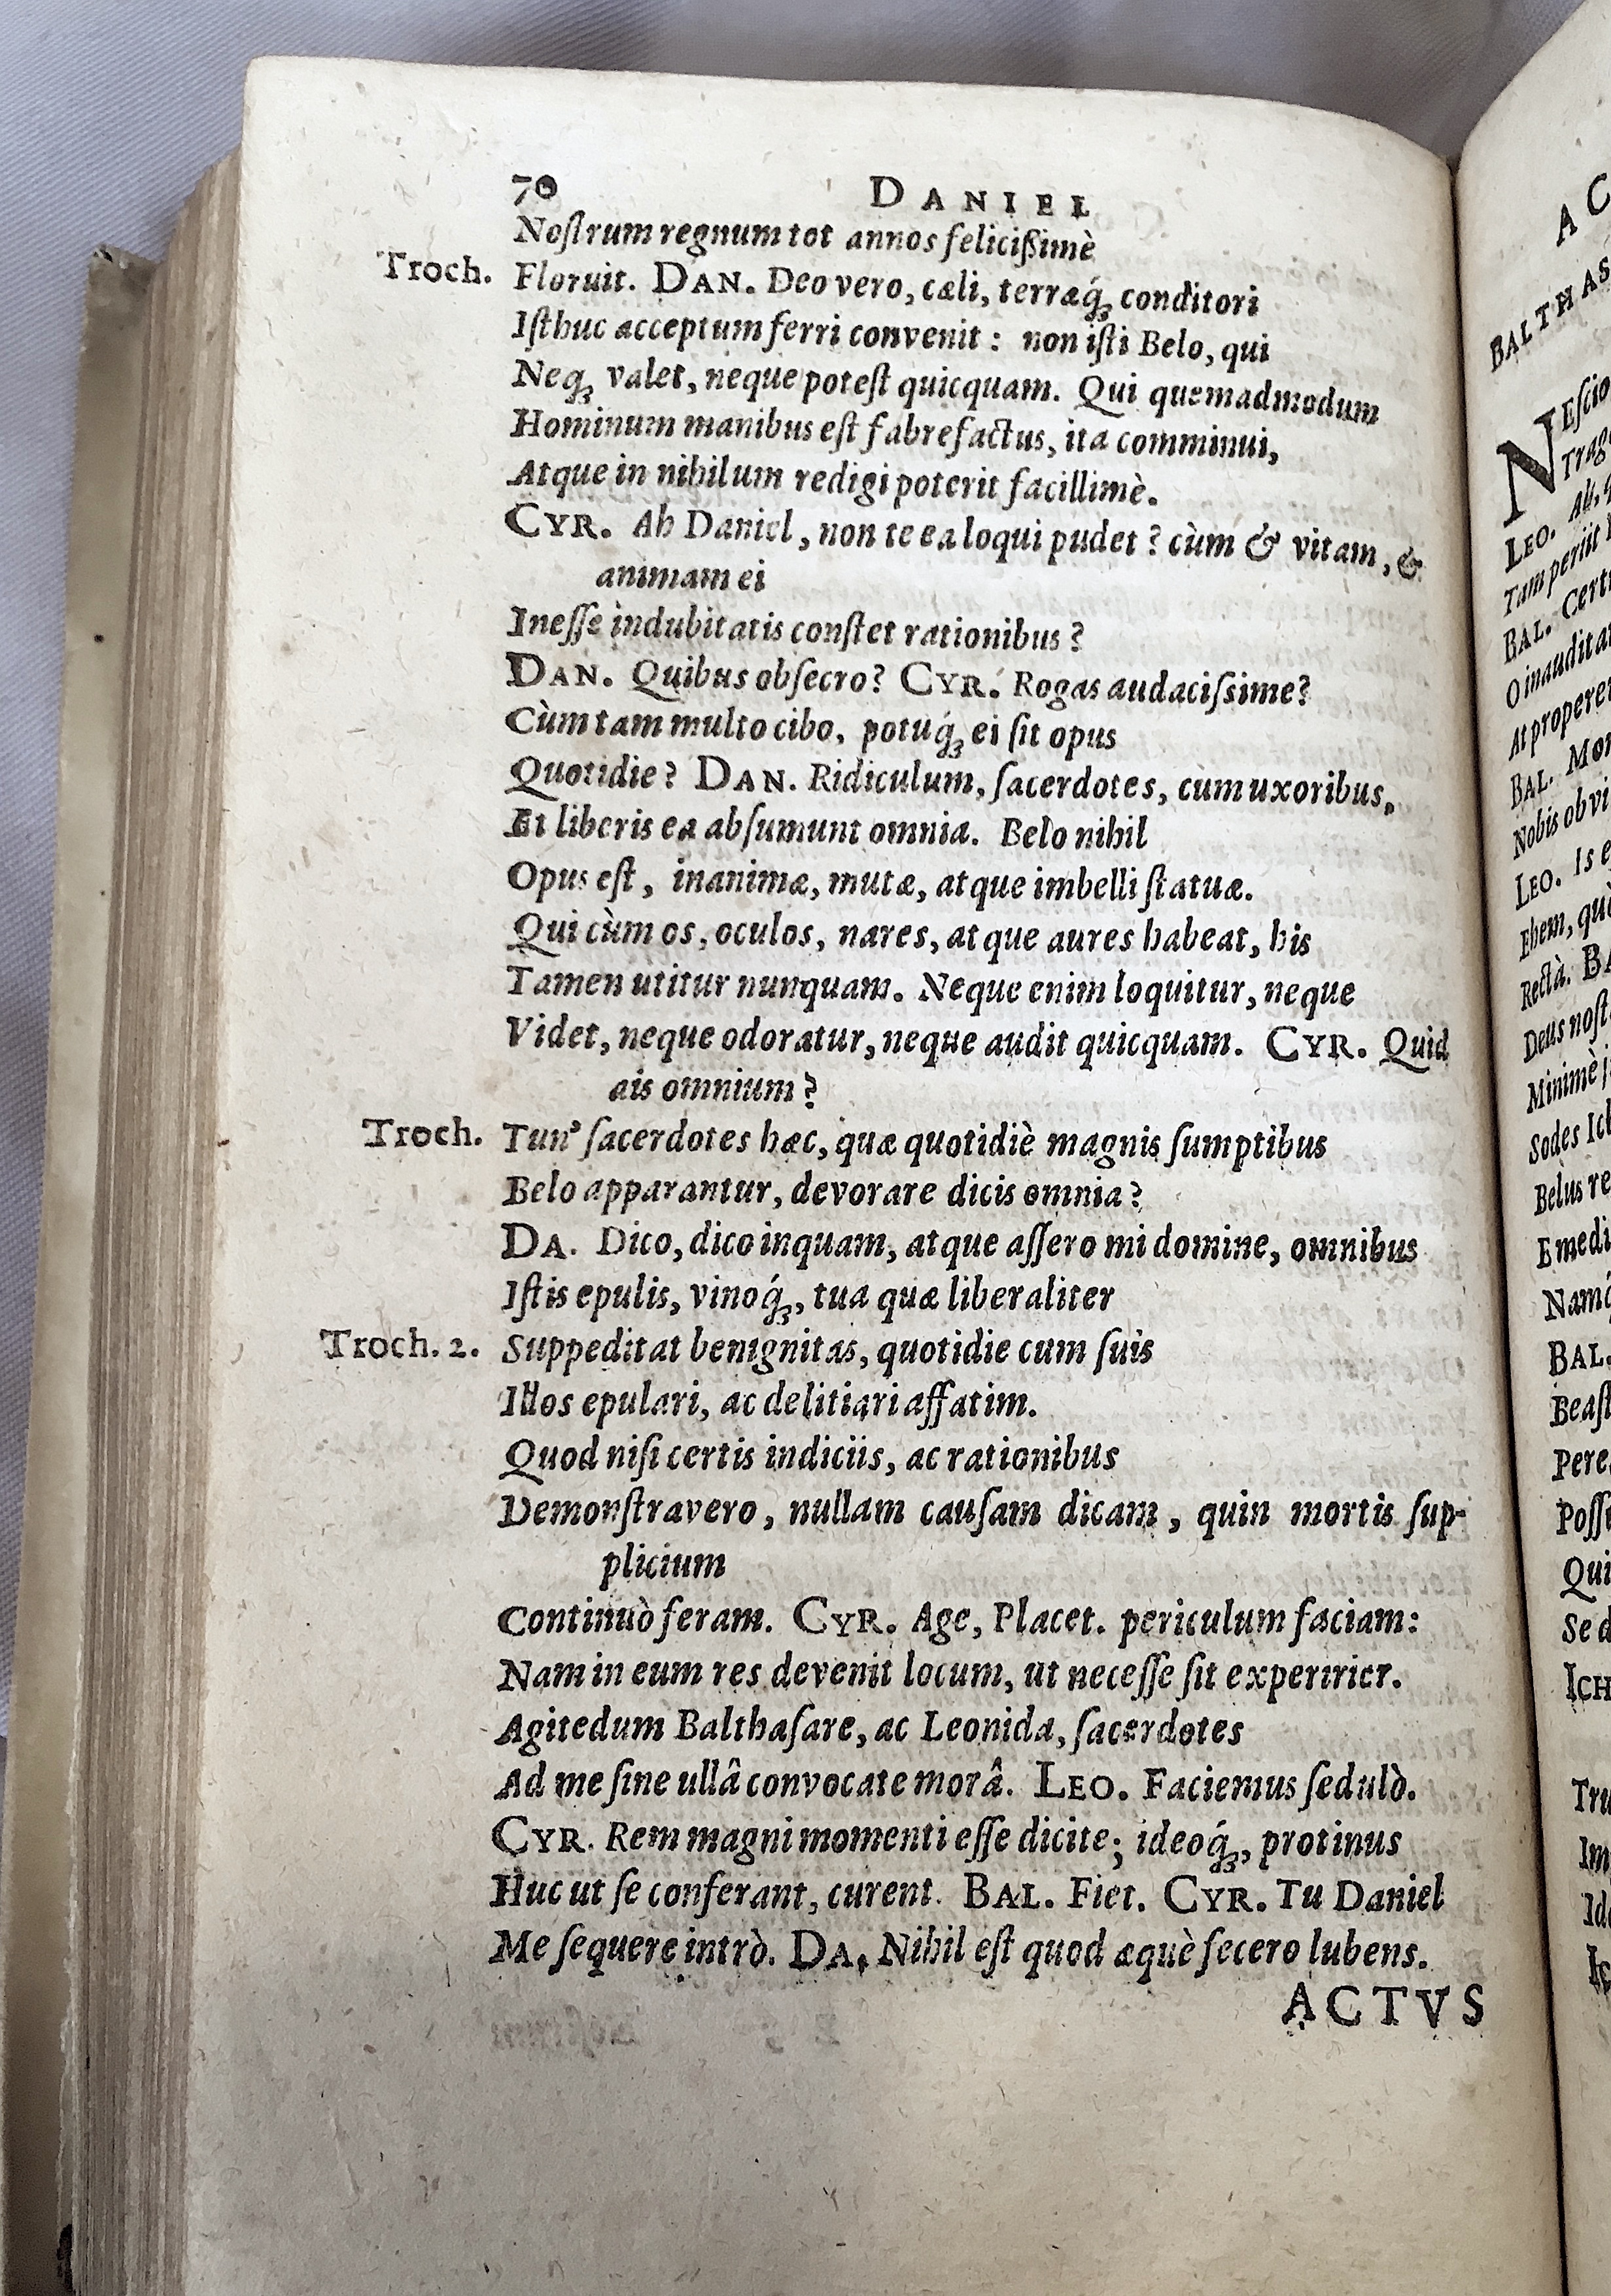 70 DANIEL
Noſtrum regnum tot annos feliciſſimè
Troch. Floruit. DAN. Deo vero, cæli, terræq́ꝫ conditori
Iſthuc acceptum ferri convenit: non iſti Belo, qui
Neqꝫ valet, neque poteſt quicquam. Qui quemadmodum
Hominum manibus eſt fabrefactus, ita comminui,
Atque in nihilum redigi poterit facillimè.
CYR. Ah Daniel, non te ea loqui pudet? cùm & vitam, &
animam ei
Ineſſe indubitatis conſtet rationibus?
DAN. Quibus obſecro? CYR. Rogas audaciſsime?
Cùm tam multo cibo, potuq́ꝫ ei ſit opus
Quotidie? DAN. Ridiculum, ſacerdotes, cum uxoribus,
Et liberis ea abſumunt omnia. Belo nihil
Opus eſt, inanimæ, mutæ, atque imbelli ſtatuæ.
Qui cùm os, oculos, nares, atque aures habeat, his
Tamen utitur nunquam. Neque enim loquitur, neque
Videt, neque odoratur, neque audit quicquam. CYR. Quid
ais omnium?
Troch. Tun' ſacerdotes hæc, quæ quotidiè magnis ſumptibus
Belo apparantur, devorare dicis omnia?
DA. Dico, dico inquam, atque aſſero mi domine, omnibus
Iſtis epulis, vinoq́ꝫ, tua quæ liberaliter
Troch. 2. Suppeditat benignitas, quotidie cum ſuis
Illos epulari, ac delitiari affatim.
Quod niſi certis indiciis, ac rationibus
Demonſtravero, nullam cauſam dicam, quin mortis ſup-
plicium
Continuò feram. CYR. Age, Placet. periculum faciam:
Nam in eum res devenit locum, ut neceſſe ſit experirier.
Agitedum Balthaſare, ac Leonida, ſacerdotes
Ad me ſine ullâ convocate morâ. LEO. Faciemus ſedulò.
CYR. Rem magni momenti eſſe dicite; ideoq́ꝫ, protinus
Huc ut ſe conferant, curent. BAL. Fiet. CYR. Tu Daniel
Me ſequere intrò. DA. Nihil eſt quod æquè fecero lubens.
ACTVS
AC
BALTHAS
NEſcio
Trag
LEO. Ah,
Tam periit
BAL. Cert
O inaudita
At propere
BAL. Mor
Nobis obvi
LEO. Is e
Ehem, quò
Rectà. BA
Deus noſt
Minimè
Sodes Ich
Belus re
E medi
Namq́
BAL.
Beaſt
Pere
Poſſ
Qui
Se d
ICH
Tru
Im
Id